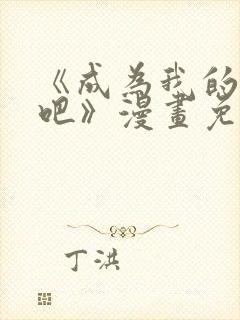 《成为我的
吧》漫画免
丁洪